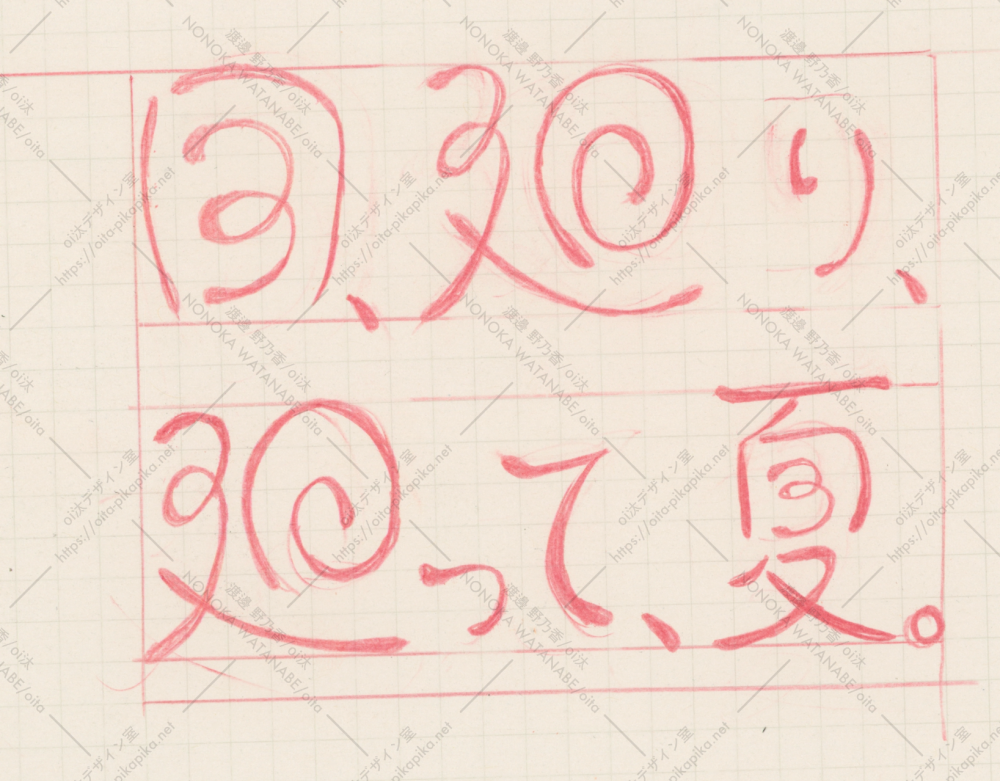 目、廻り、
廻って、夏。
渡邊 野乃香/oi汰
NONOKA WATANABE/oita
oi汰デザイン室
https://oita-pikapika.net